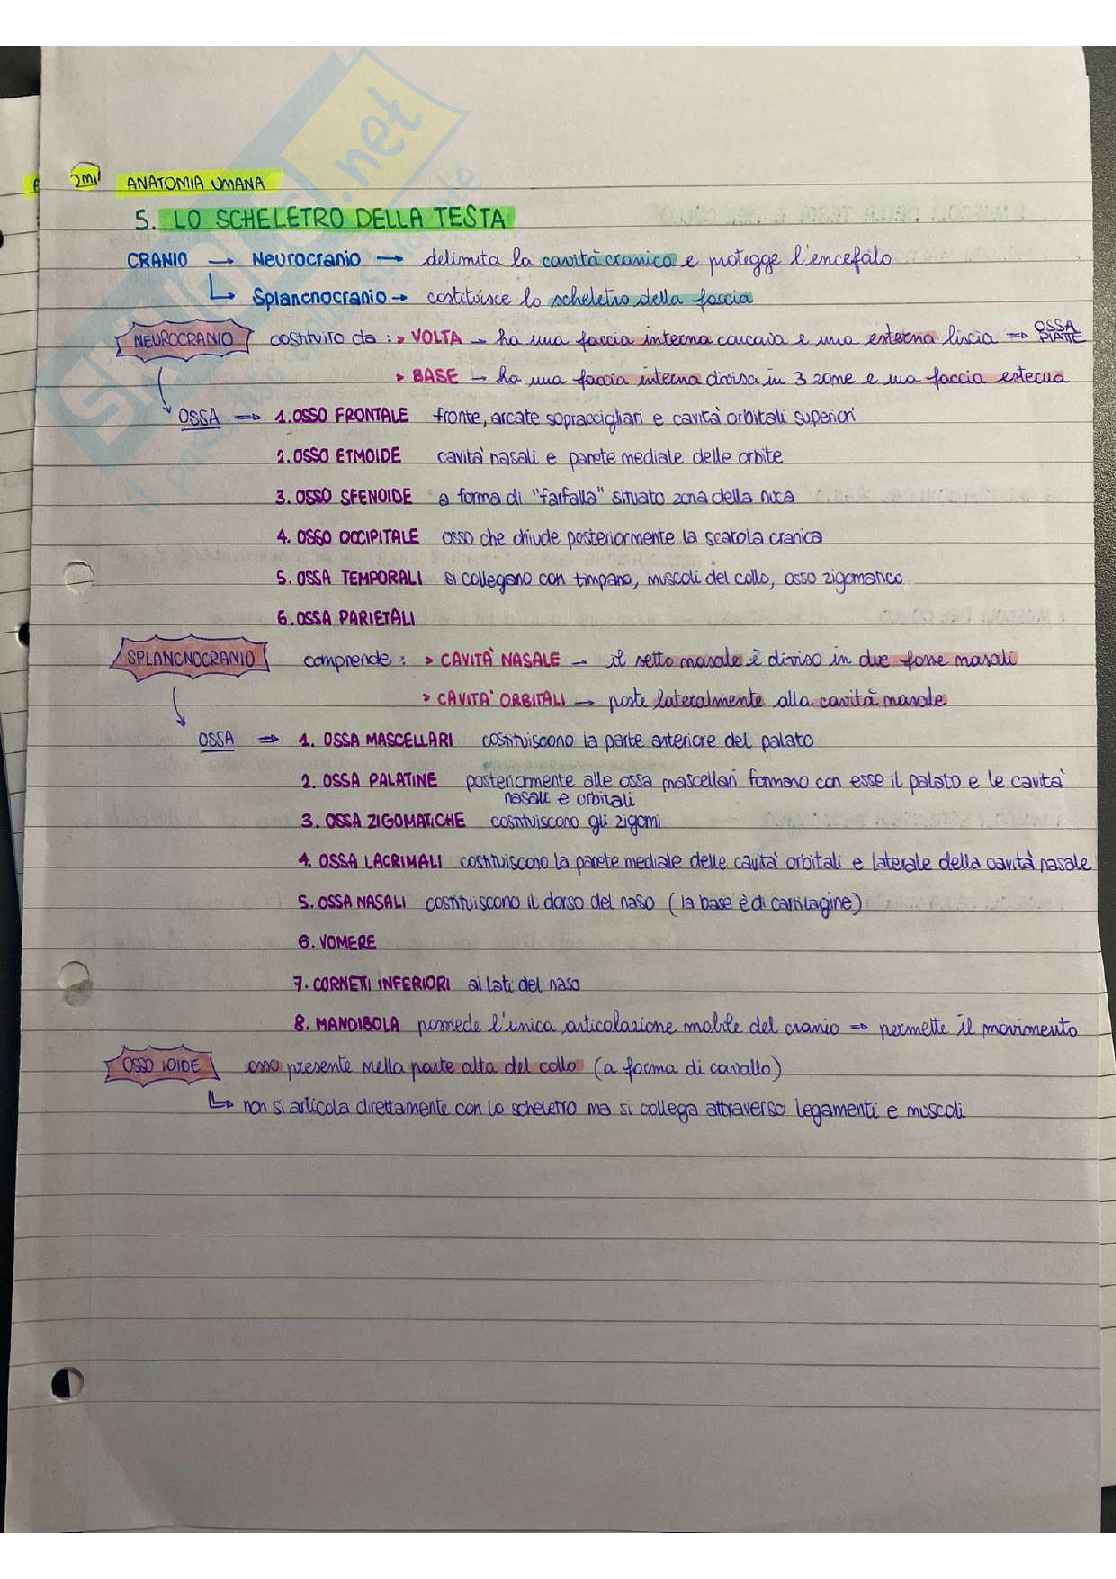 2mil ANATOMIA UMANA
5. LO SCHELETRO DELLA TESTA
CRANIO → Neurocranio → delimita la cavità cranica e protegge l'encefalo
↳ Splancnocranio → costituisce lo scheletro della faccia
NEUROCRANIO costituito da : > VOLTA → ha una faccia interna concava e una esterna liscia ⇒ OSSA PIATTE
> BASE → ha una faccia interna divisa in 3 zone e una faccia esterna
OSSA → 1. OSSO FRONTALE fronte, arcate sopraccigliari e cavità orbitali superiori
2. OSSO ETMOIDE cavità nasali e parete mediale delle orbite
3. OSSO SFENOIDE a forma di "farfalla" situato zona della nuca
4. OSSO OCCIPITALE osso che chiude posteriormente la scatola cranica
5. OSSA TEMPORALI si collegano con timpano, muscoli del collo, osso zigomatico
6. OSSA PARIETALI
SPLANCNOCRANIO comprende : > CAVITÀ NASALE → il setto nasale è diviso in due fosse nasali
> CAVITÀ ORBITALI → poste lateralmente alla cavità nasale
OSSA ⇒ 1. OSSA MASCELLARI costituiscono la parte anteriore del palato
2. OSSA PALATINE posteriormente alle ossa mascellari formano con esse il palato e le cavità
nasali e orbitali
3. OSSA ZIGOMATICHE costituiscono gli zigomi
4. OSSA LACRIMALI costituiscono la parete mediale delle cavità orbitali e laterale della cavità nasale
5. OSSA NASALI costituiscono il dorso del naso (la base è di cartilagine)
6. VOMERE
7. CORNETI INFERIORI ai lati del naso
8. MANDIBOLA possiede l'unica articolazione mobile del cranio ⇒ permette il movimento
OSSO IOIDE osso presente nella parte alta del collo (a forma di cavallo)
↳ non si articola direttamente con lo scheletro ma si collega attraverso legamenti e muscoli